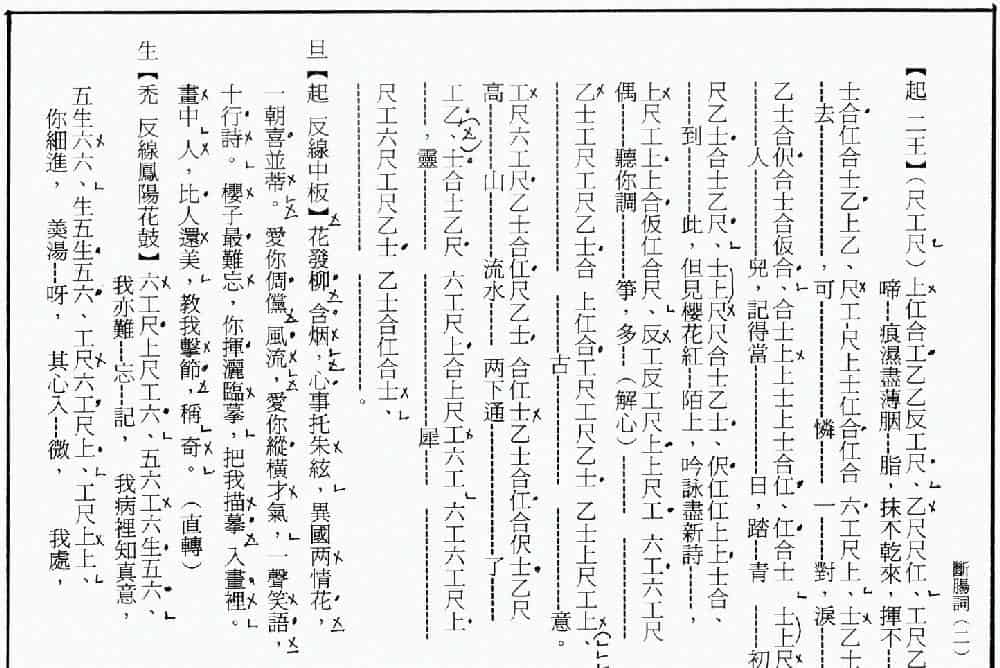 斷腸詞(二)
【起 二王】(尺工尺)上仜合工乙乙反工尺、乙尺尺仜、工尺乙
啼 痕濕盡薄胭 脂,抹不乾來,揮不
士合仜合士乙上乙、尺工尺上士仜合仜合 六工尺上、士乙士
去 ,可 憐 一 對,淚
乙士合伬合士合士合仮合、合士上上士上士合仜、仜合士 士上尺
人 兒,記得當 日,踏 青 初
尺乙士合士乙尺、士上尺尺合士乙士、伬仜仜上上士合、
到 此,但見櫻花紅 陌上,吟詠盡新詩 ,
上尺工上上合仮仜合尺、反工反工尺上上尺工 六工六工尺
偶 聽你調 箏,多 (解心)
乙士工尺工尺乙士合 上仜合工尺工尺乙士 乙士上尺工上、
古 意。
工尺六工尺乙士合仜尺乙士 合仜士乙士合仜合伬士乙尺
高 山 流水 两下通 了
工乙、士合上乙尺 六工尺上合上尺工六工 六工六工尺上
,靈 犀
尺工六尺工尺乙士 乙士合仜合士、
。
旦【起 反線中板】花發柳,含烟,心事托朱絃,異國两情花,
一朝喜並蒂。愛你倜儻,風流,愛你縱橫才氣,一聲笑語,
十行詩。櫻子最難忘,你揮灑臨摹,把我描摹,入畫裡。
畫中,人,比人還美,教我擊節,稱,奇。(直轉)
生【禿 反線鳳陽花鼓】六工尺上尺工六、五六工六生五六、
我亦難 忘 記, 我病裡知真意,
五生六六、生五五生五六、工尺六工尺上、工尺上上、
你細進, 羹湯 呀, 其心入 微, 我處,